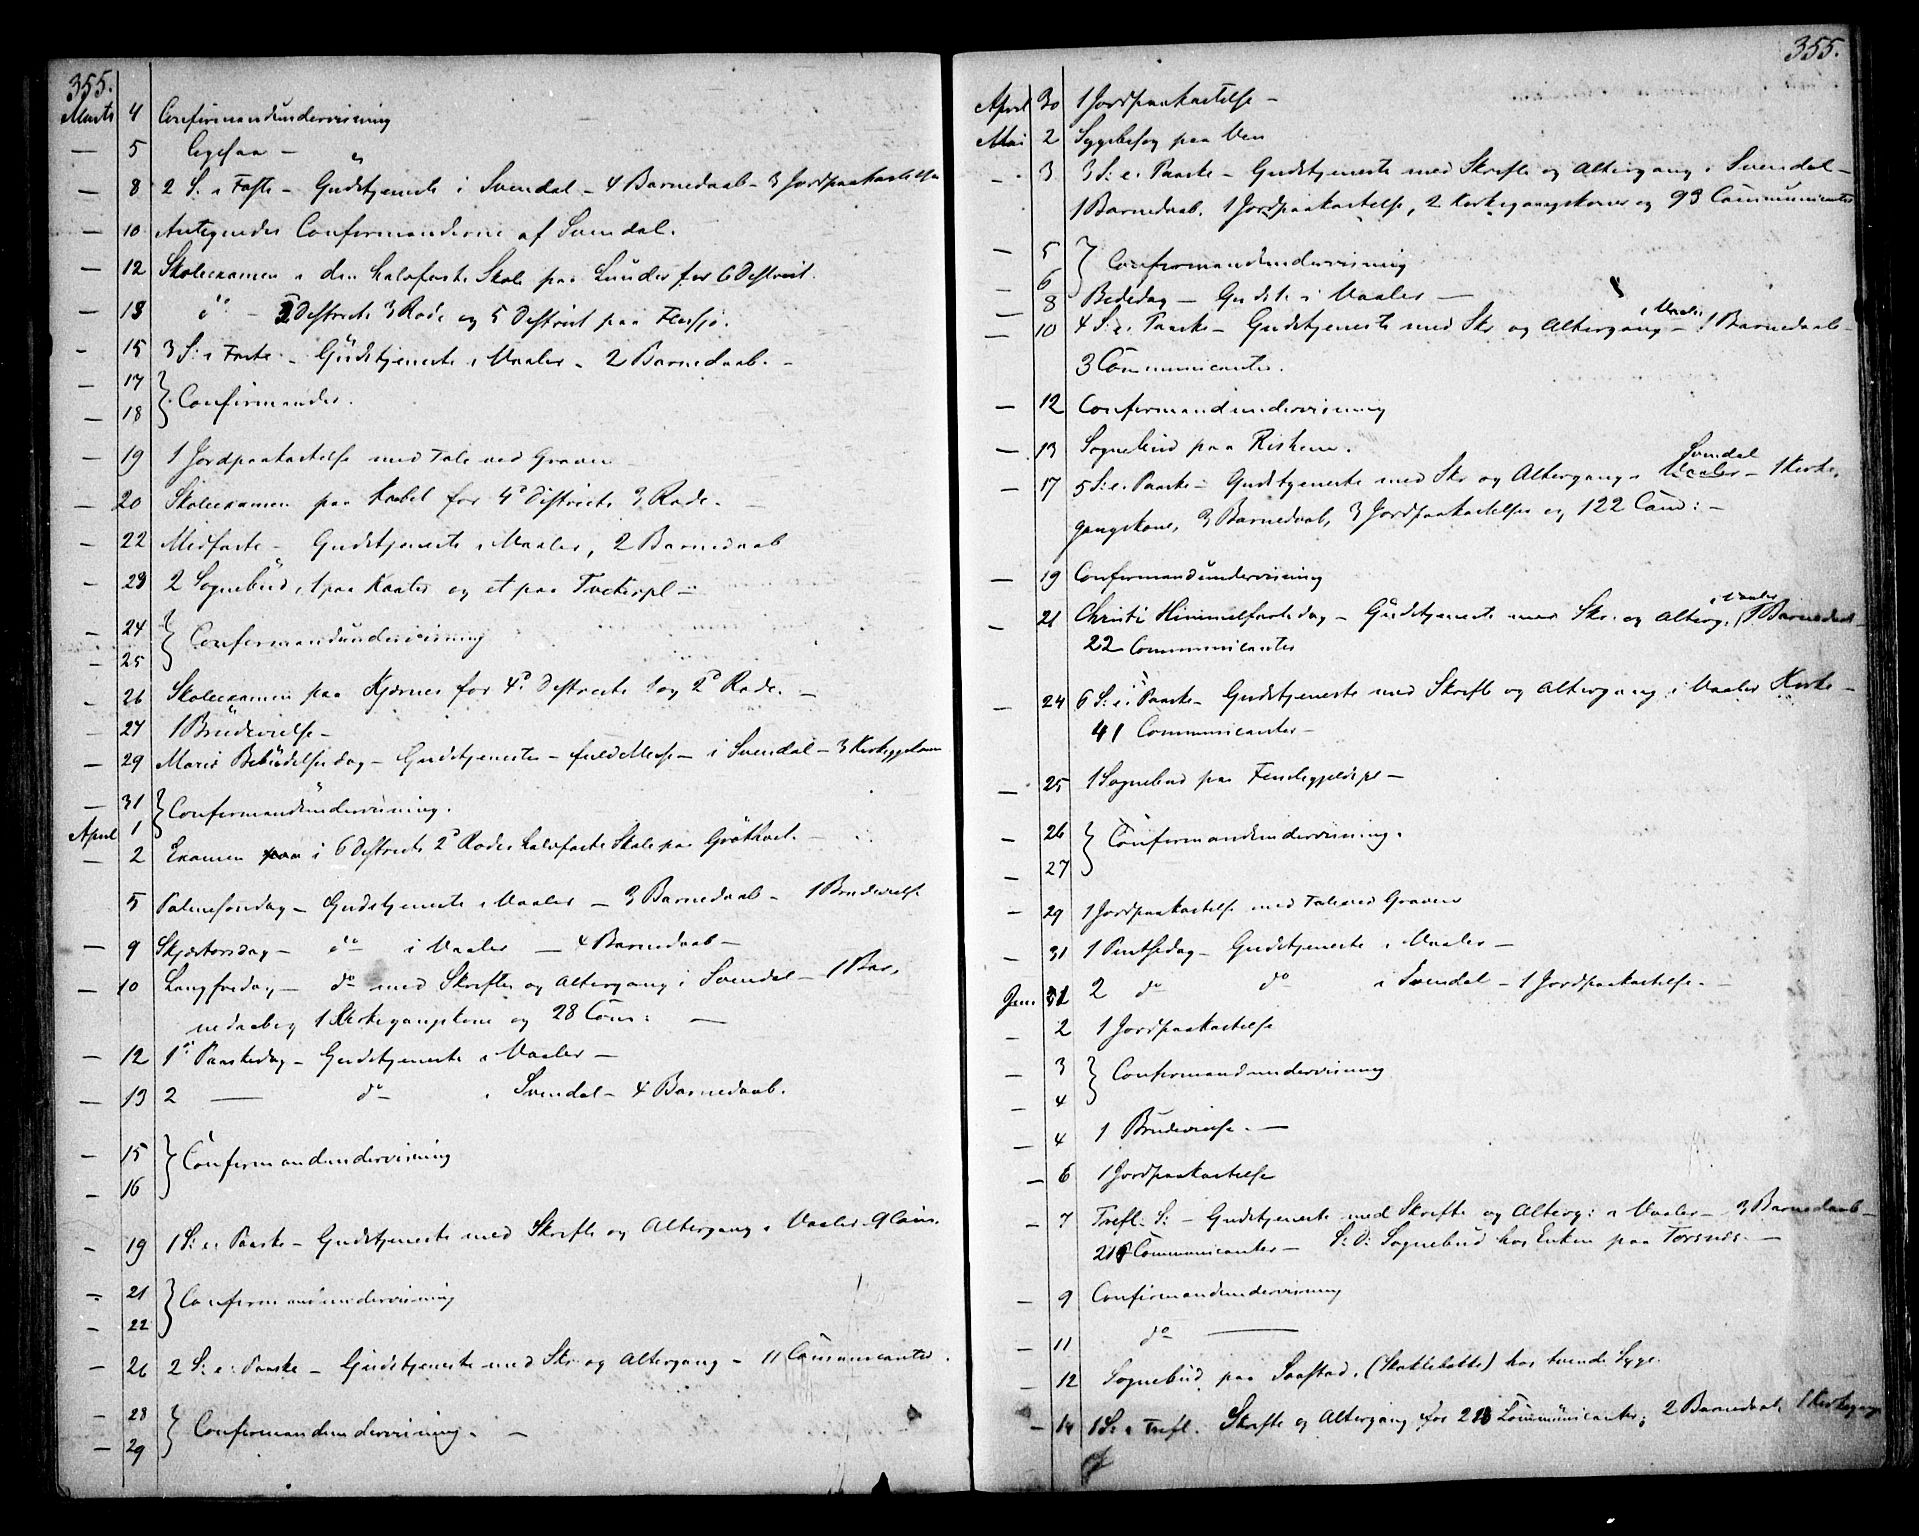 355.
Marts 4 Confirmandundervisning
— 5 Ligesaa —
— 8 2 S: i Faste — Gudstjeneste i Svendal — 4 Barnedaab — 3 Jordpaakastelse
— 10 Antegnedes Confirmanderne af Svendal.
— 12 Skoleexamen i den halvfaste Skole paa Lunder for 6 Distrist.
— 13 do — 2 Distrikts 3 Rode og 5 Distrist paa Flesjø.
— 15 3 S: i Faste — Gudstjeneste i Vaaler — 2 Barnedaab. —
— 17
— 18 } Confirmander.
— 19 1 Jordpaakastelse med Tale ved Graven
— 20 Skoleexamen paa Kabel for 4de Distrikts 3 Rode. —
— 22 Midfaste — Gudstjeneste i Vaaler, 2 Barnedaab
— 23 2 Sognebud, 1 paa Kaaler og et paa Tveterpl —
— 24
— 25 } Confirmandundervisning
— 26 Skoleexamen paa Kjærnes for 4de Distrikts 1 og 2den Rode. —
— 27 1 Brudevielse —
— 29 Mariæ Bebudelsesdag — Gudstjeneste — fuld Messe — i Svendal — 3 Kirkeggskoner
— 31
April 1 } Confirmandundervisning.
— 2 Examen i 6 Distrikts 2den Rodes halvfaste Skole paa Grøtvet. —
5 Palmesøndag — Gudstjeneste i Vaaler — 3 Barnedaab — 1 Brudevielse
— 9 Skjærtorsdag — do i Vaaler — 4 Barnedaab —
— 10 Langfredag — do med Skrifte og Altergang i Svendal — 1 Bar,
nedaab og 1 Kirkegangskone og 28 Com: —
— 12 1ste Paaskedag — Gudstjeneste i Vaaler —
— 13 2 — do — i Svendal — 4 Barnedaab.
— 15
— 16 } Confirmandundervisning
— 19 1 S: e. Paaske — Gudstjeneste med Skrifte og Altergang i Vaaler. 9 Com.
— 21
— 22 } Confirmandundervisning
— 26 2 S: e: Paaske — Gudstjeneste med Skr og Altergang — 11 Communicanter.
— 28
— 29 } Confirmandundervisning. —
355.
April 30 1 Jordpaakastelse —
Mai 2 Sygebesøg paa Ven
— 3 3 S: e. Paaske — Gudstjeneste med Skrifte og Altergang i Svendal —
1 Barnedaab, 1 Jordpaakastelse, 2 Kirkegangskoner og 93 Communicanter
— 5
— 6 } Confirmandundervisning
8 Bededag — Gudst. i Vaaler —
— 10 4 S: e. Paaske — Gudstjeneste med Skr og Altergang i Vaaler — 1 Barnedaab —
3 Communicanter.
— 12 Confirmandundervisning
— 13 Sognebud paa Risheim.
— 17 5 S: e. Paaske — Gudstjeneste med Skr og Altergang i Vaaler Svendal — 1 Kirke,
gangskone, 3 Barnedaab, 3 Jordpaakastelser og 122 Com: —
— 19 Confirmandundervisning
— 21 Christi Himmelfartsdag — Gudstjeneste med Skr. og Alterg. i Vaaler, 1 Barnedaab —
22 Communicanter
— 24 6 S: e: Paaske — Gudstjeneste med Skrifte og Altergang i Vaaler Kirke —
41 Communicanter —
— 25 1 Sognebud paa —
— 26
— 27 } Confirmandundervisning.
— 29 1 Jordpaakastelse med Tale ved Graven
— 31 1 Pintsedag — Gudstjeneste i Vaaler —
Juni 1 2 do do i Svendal — 1 Jordpaakastelse. —
— 2 1 Jordpaakastelse
— 3
— 4 } Confirmandundervisning
— 4 1 Brudevielse. —
— 6 1 Jordpaakastelse
— 7 Trefl. S: — Gudstjeneste med Skrifte og Alterg: i Vaaler — 3 Barnedaab —
21 Communicanter — S: D: Sognebud hos Enken paa Torsnes. —
— 9 Confirmandundervisning
— 11 do —
— 12 Sognebud paa Saastad, (Skaklebøtte) hos tvende Syge.
— 14 1 S: e Trefl. Skrifte og Altergang for 28 Communicanter, 2 Barnedaab, 1 Kirkegangs